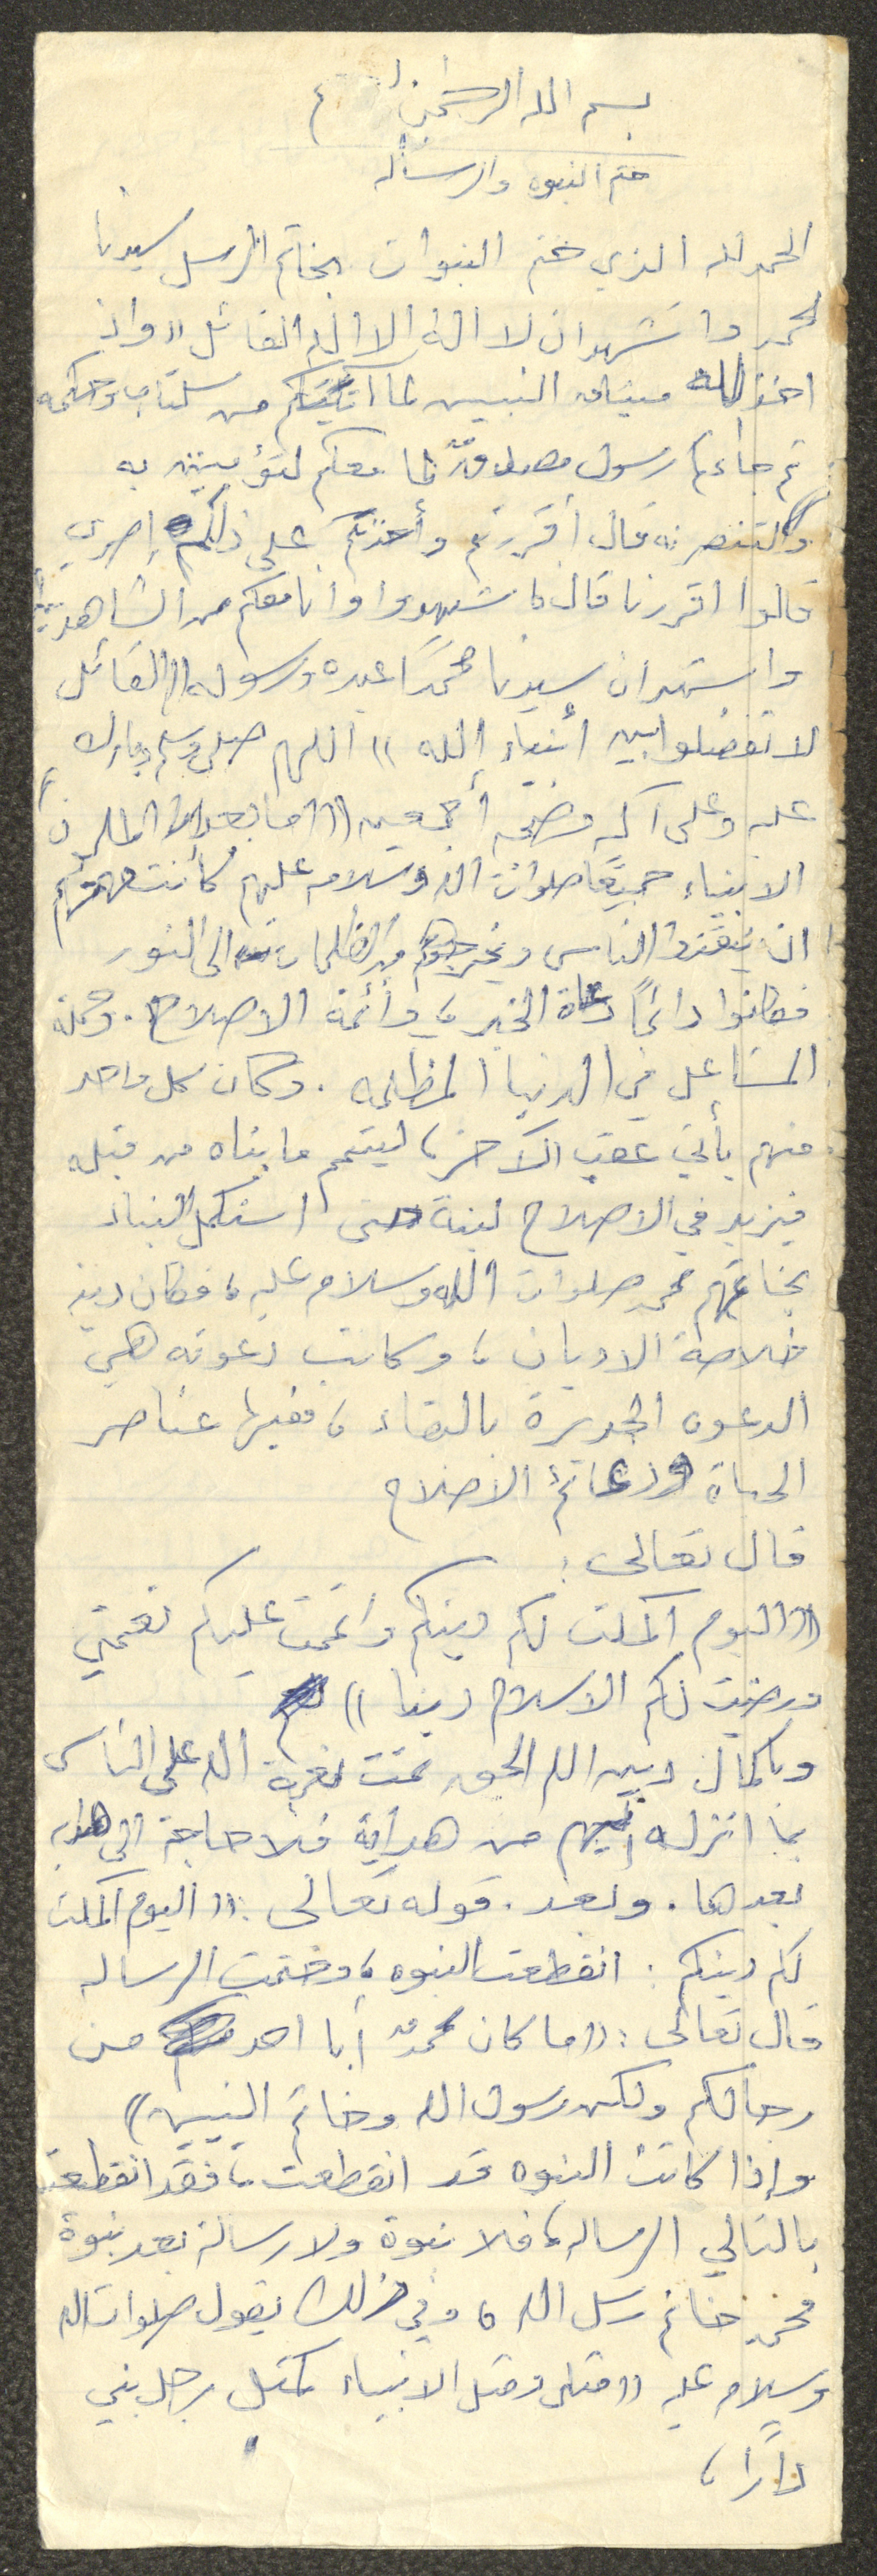 بسم الله الرحمن
ختم النبوه والرساله
الحمد لله الذي ختم النبوات بخاتم الرسل سيدنا
محمد واشهد ان لا اله الا الله القائل ((واذ
اخذ الله ميثاق النبيين لما اتيتكم من كتاب وحكمه
ثم جاءكم رسول مصدقٌ لما معكم لتؤمينن به
ولتنصرنه قال أقررتم وأخذتم على ذلكم إصري
قالوا اقررنا قال فاشهدوا وانا معكم من الشاهدين
واشهد ان سيدنا محمدًا عبده ورسوله ((القائل
لا تفضلوا بين أنبياء الله )) اللهم صلى وسلم وبارك
عليه وعلى آله وصحبه أجمعين ((اما بعد
الانبياء جميعًا صلوات الله وسلامه عليهم كانت مهمتهم
ان ينقذوا الناس ويخرجوهم من الظلمات الى النور
فكانوا دائمًا دعاة الخير، وأئمة الاصلاح. وحملة
المشاعل في الدنيا المظلمه. وكان كل واحد
منهم يأتي عقب الآخر، ليتمم ما بناه من قبله
فيزيد في الاصلاح لبنة حتى استكمل البناء
بخاتمهم محمد صلوات الله وسلامه عليه، فكان دينه
خلاصة الاديان، وكانت دعوته هي
الدعوه الجديرة بالبقاء، ففيها عناصر
الحياة ودعائم الاصلاح
قال تعالى:
((اليوم اكملت لكم دينكم واتممت عليكم نعمتي
ورضيت لكم الاسلام دينا ))
وباكمال دين الله الحق تمت نعمة الله على الناس
بما انزله اليهم من هداية فلا حاجة الى هدايه
بعدها. وبعد. قوله تعالى: ((اليوم اكملت
لكم دينكم: انقطعت النبوه، وختمت الرساله
قال تعالى: ((ما كان محمدٌ أبا احد من
رجالكم ولكن رسول الله وخاتم النبيين))
وإذا كانت النبوه قد انقطعت، فقد انقطعت
بالتالي الرساله، فلا نبوة ولا رسالة بعد نبوة
محمد خاتم رسل الله، وفي ذلك يقول صلوات الله
وسلامه عليه ((مثلى ومثل الانبياء كمثل رجل بنى
دارًا،